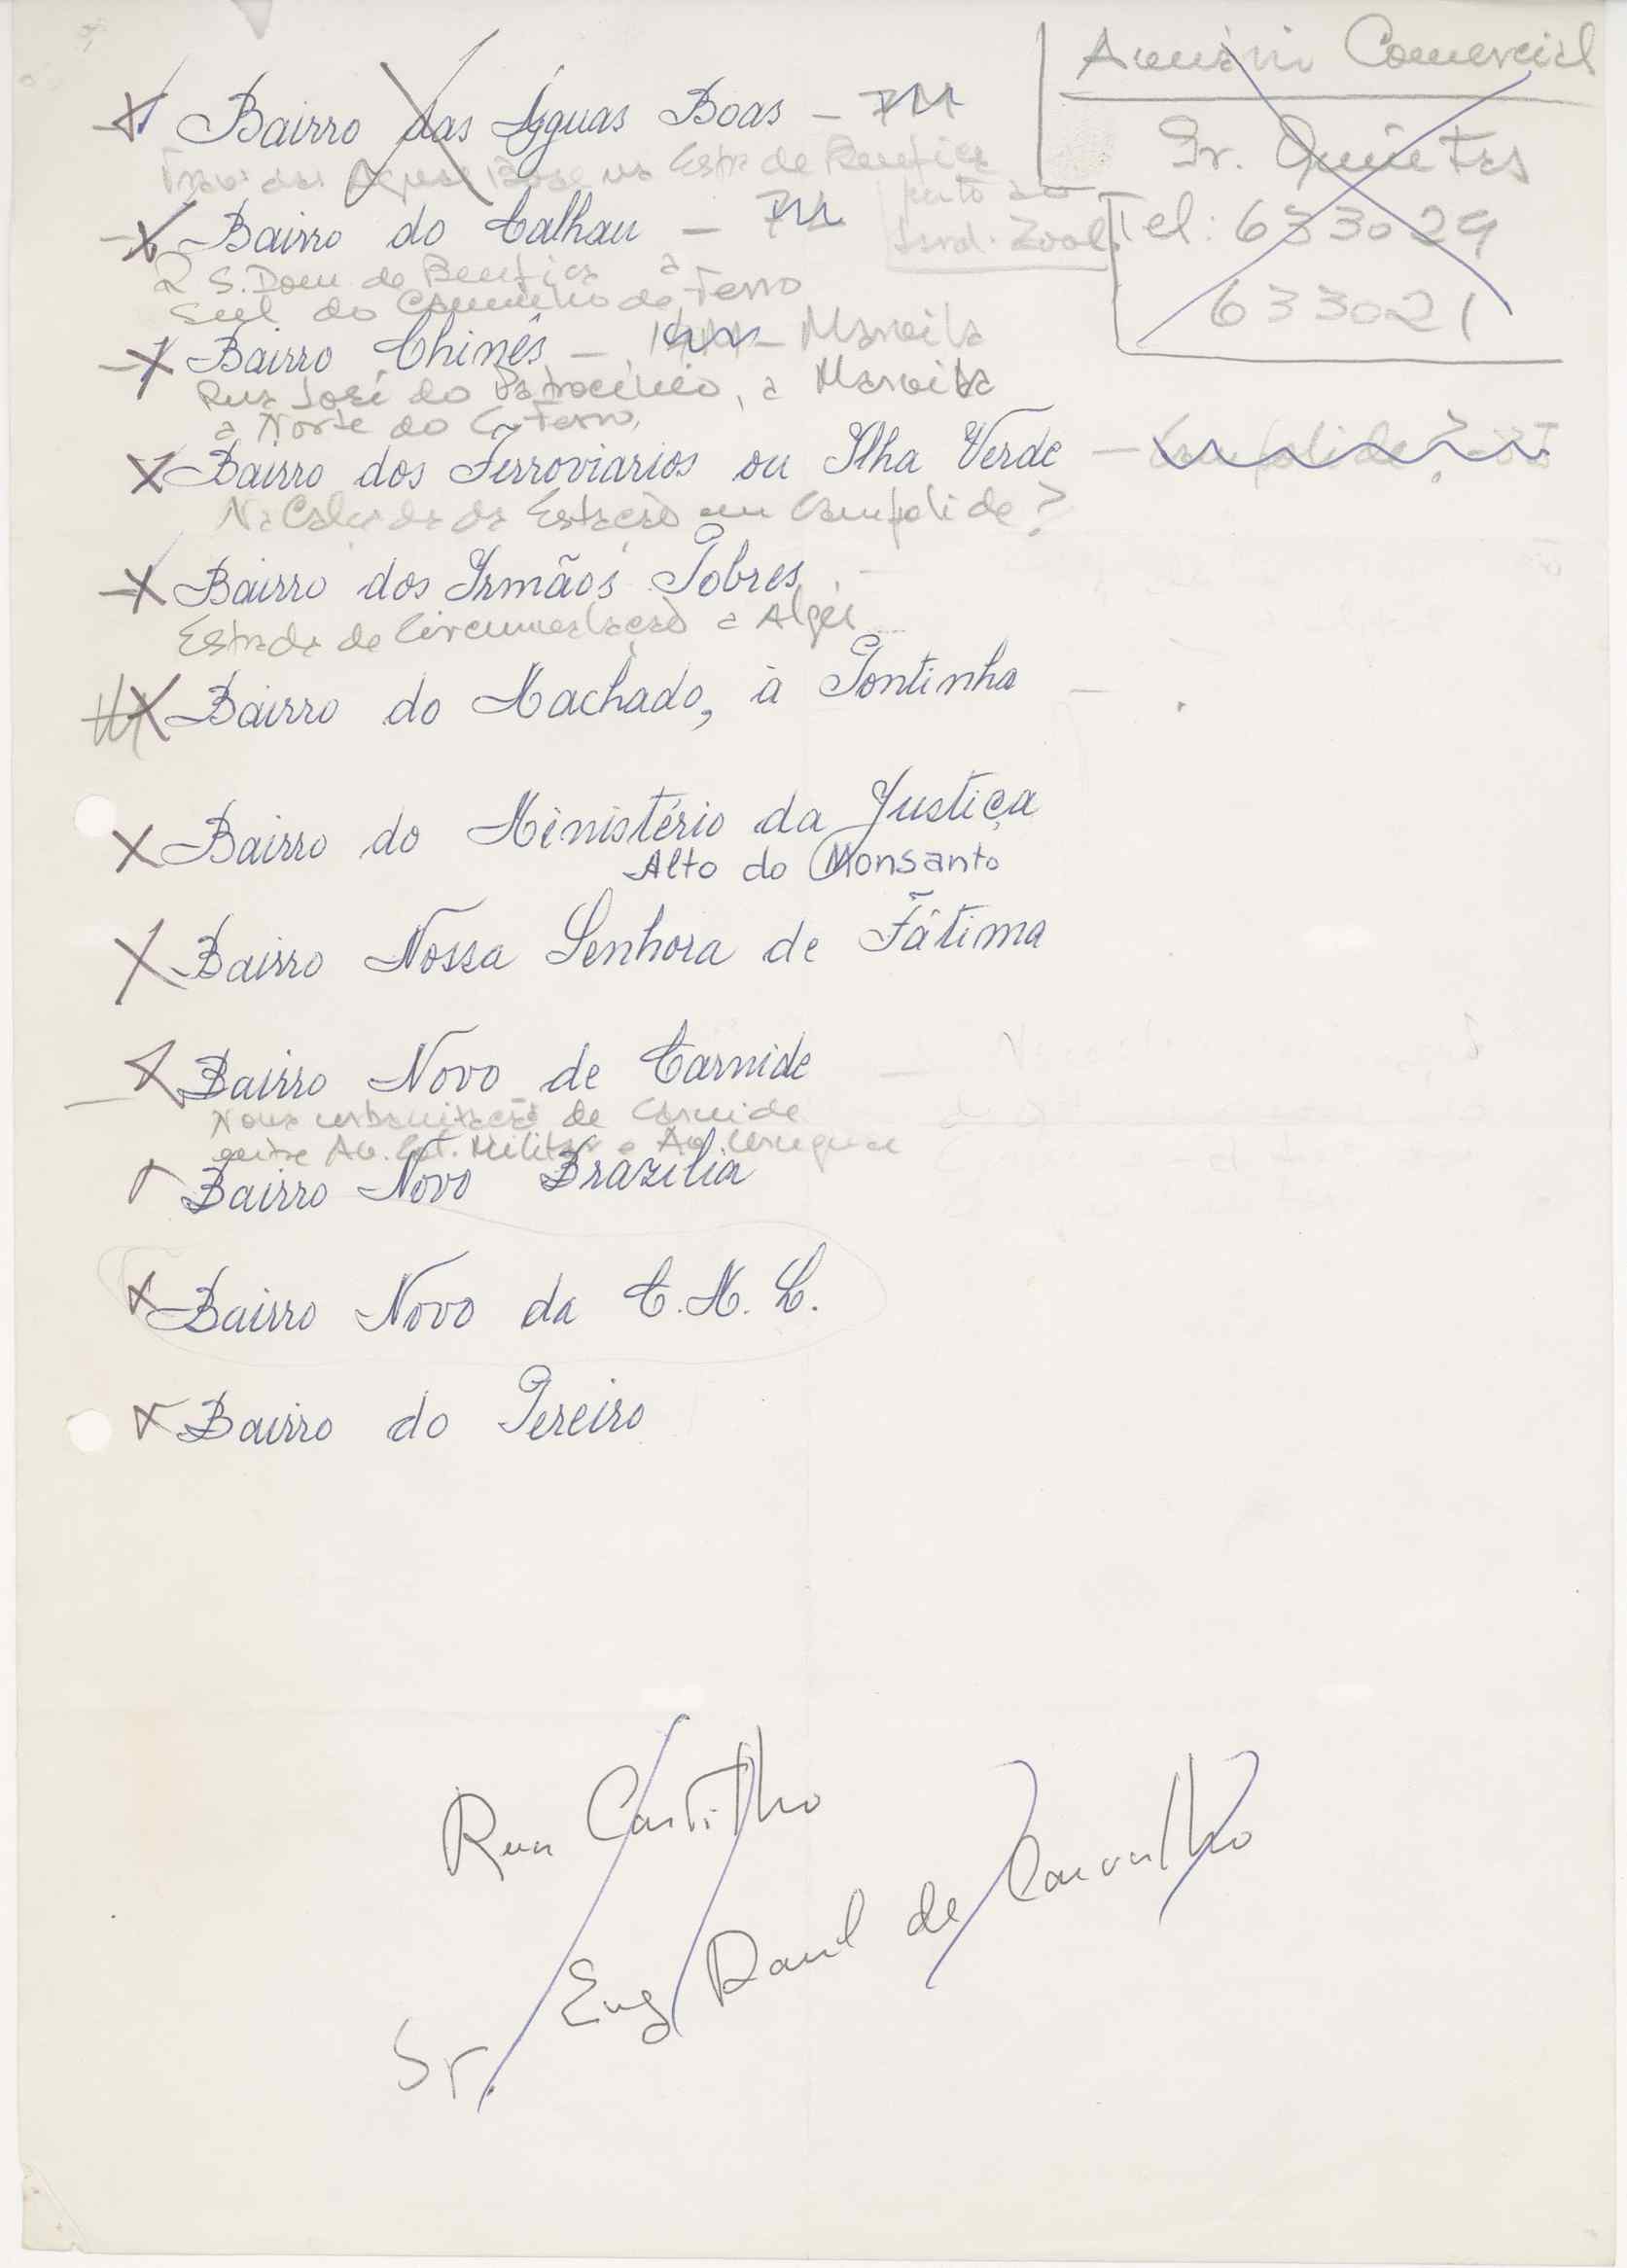 Anuário Comercial
Sr. Quintas
Tel: 633029
633021
Bairro das Águas Boas –
Trav. das Águas Boas na Estr. de Benfica
junto ao
Jard. Zool.
Bairro do Calhau –
R S. Dom de Benfica a
Sul do Caminho de Ferro
Bairro Chinês – Marvila
Rua José do Patrocínio, a Marvila
a Norte do C. Ferro,
Bairro dos Ferroviarios ou Ilha Verde – Campolide?
Na Calçada da Estação em Campolide?
Bairro dos Irmãos Pobres
Estrada de Circunvalação a Algés
Bairro do Machado, à Pontinha –
Bairro do Ministério da Justiça
Alto do Monsanto
Bairro Nossa Senhora de Fátima
Bairro Novo de Carnide –
Nova urbanização de Carnide
entre Av. Col. Militar e Av. Uruguai
Bairro Novo Brazilia
Bairro Novo da C.M.L.
Bairro do Pereiro
Rua Castilho
Sr. Eng Raul de Carvalho